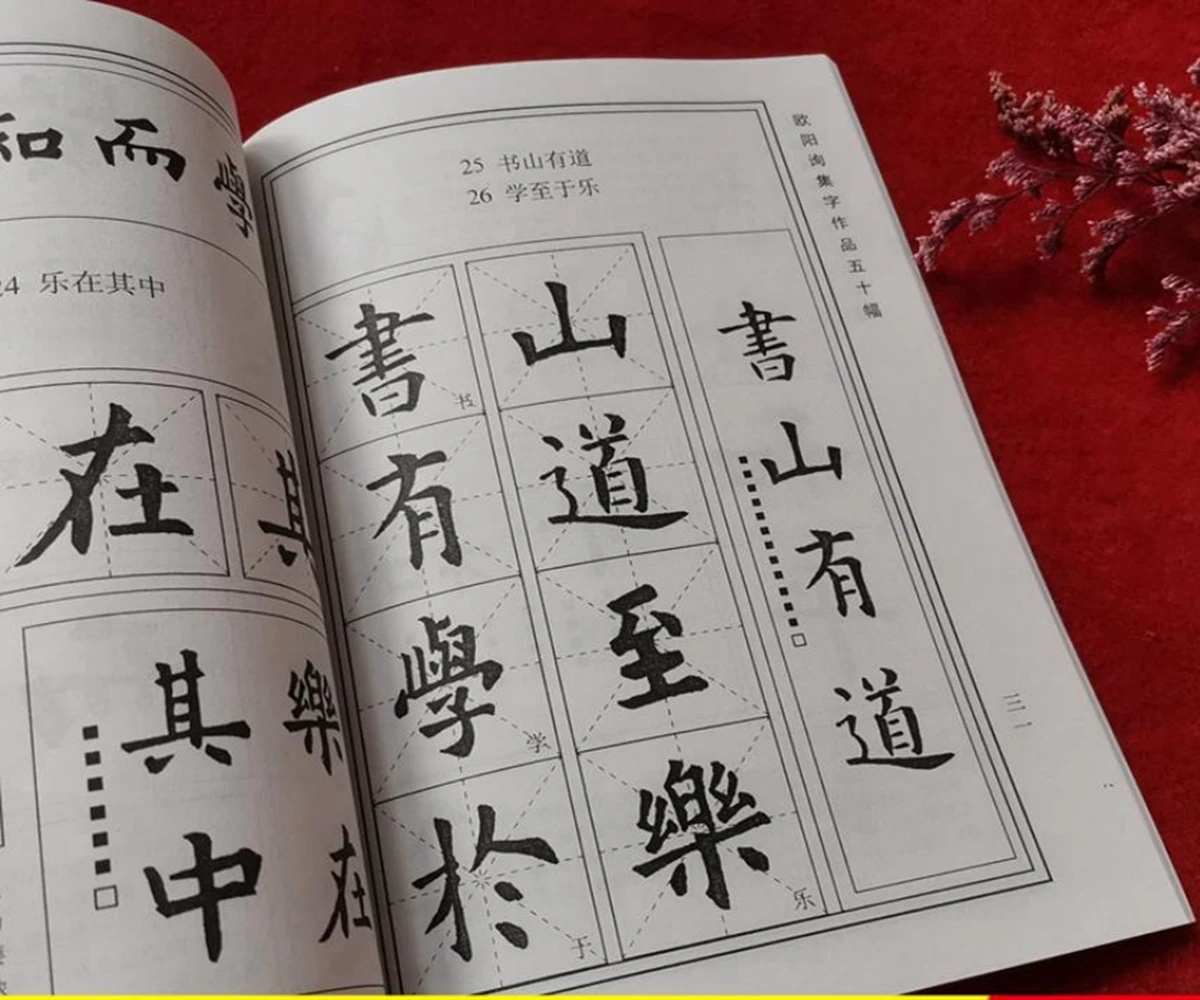 和而學
24 乐在其中
在其
樂在
其中
25 书山有道
26 学至于乐
書山
书
有道
學至
学
於樂
于
乐
書山有道
欧阳询集字作品五十幅
三一